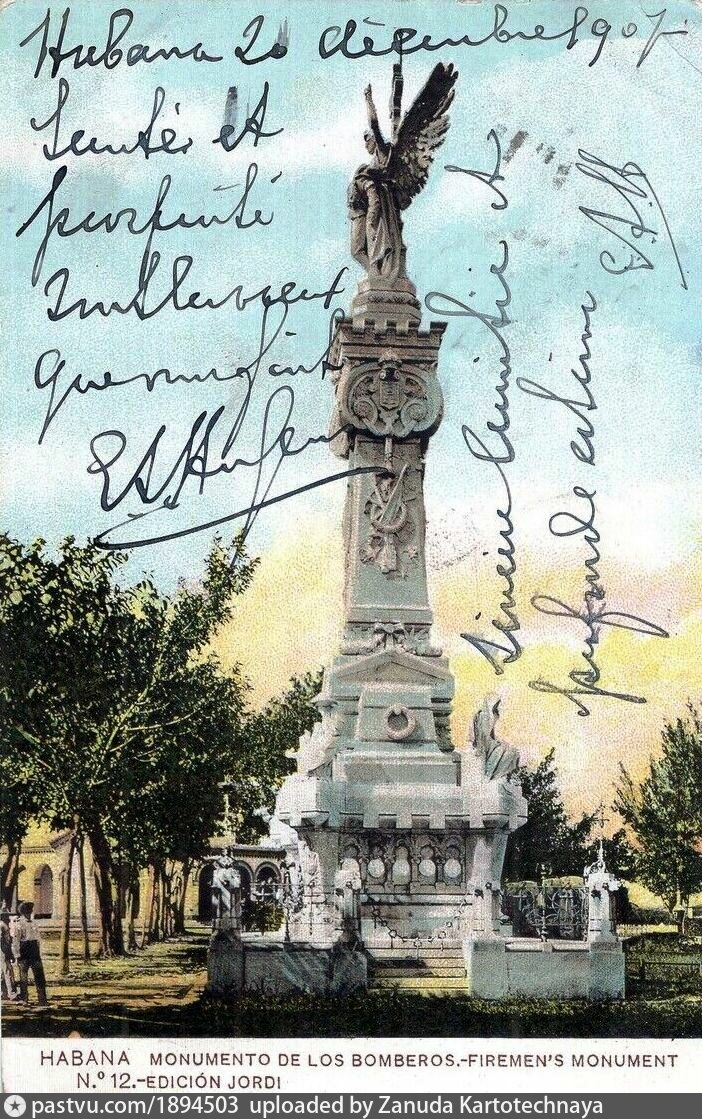 Habana 20 décembre 1907
Santé et
prospérité
EAHugen
sincère amitié &
profonde estime
E.A.H.
HABANA MONUMENTO DE LOS BOMBEROS.-FIREMEN'S MONUMENT
N.º 12.-EDICIÓN JORDI
pastvu.com/1894503 uploaded by Zanuda Kartotechnaya